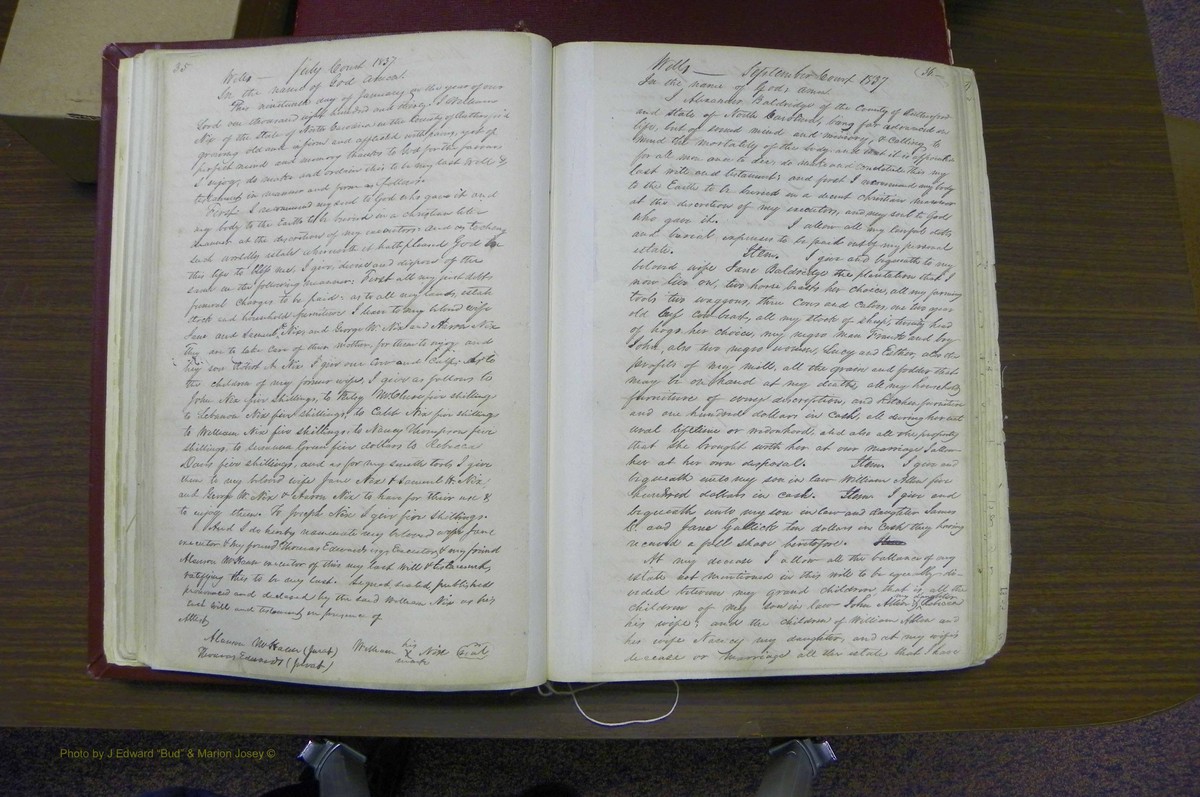 35
Wills — July Court 1837
In the name of God Amen.
This nineteenth day of January in the year of our
Lord one thousand eight hundred and thirty. I William
Nix of the State of North Carolina in the County of Rutherford
growing old and infirm and afflicted with pains, yet of
perfect mind and memory thanks to God for the favours
I enjoy, do make and ordain this to be my last Will &
testament, in manner and form as follows
First. I recommend my soul to God who gave it and
my body to the Earth to be buried in a christian like
manner at the discretion of my executors. And as touching
such worldly estate wherewith it hath pleased God in
this life to bless me, I give, devise and dispose of the
same in the following manner. First all my just debts
funeral charges to be paid: as to all my lands, estate
stock and household furniture I leave to my beloved wife
Jane and Samuel Nix, and George W. Nix and Aaron Nix
They are to take care of their mother, for them to enjoy and
My son A. Nix I give one Cow and Calf: As to
the children of my former wife, I give as follows to
John Nix five Shillings, to Polley McClure five shillings
to Lebanon Nix five shillings, to Caleb Nix five shillings
to William Nix five shillings: to Nancy Thompson five
shillings, to Green five dollars to Rebecca
Davis five shillings, and as for my smith tools I give
them to my beloved wife Jane Nix & Samuel W. Nix
and George W. Nix & Aaron Nix to have for their use &
to enjoy them. To Joseph Nix I give five Shillings.
And I do hereby nominate my beloved wife Jane
executor & my friend Thomas Edwards my Executor, & my friend
executor of this my last Will & testament,
ratifying this to be my last. Signed sealed, published
pronounced and declared by the said William Nix as his
last will and testament, in presence of
Attest,
(Jurat) William his Nix Seal
Thomas Edwards (Jurat) X mark
36
Wills — September Court 1837
In the name of God, amen
I Alexander Baldridge of the County of Rutherford
and State of North Carolina, being far advanced in
life, but of sound mind and memory, & calling to
mind the mortality of the body, and that it is appointed
for all men once to die; do make and constitute this my
last will and testament; and first I recommend my body
to the Earth to be buried in a decent Christian manner
at the discretion of my executors, and my soul to God
who gave it. I allow all my lawful debts
and burial expenses to be paid out of my personal
estate. Item. I give and bequeath to my
beloved wife Jane Baldridge the plantation that I
now live on, two horse beasts her choice, all my farming
tools two waggons, three Cows and Calves, one two year
old beef Cow beast, all my stock of sheep, twenty head
of hogs her choice, my negro man Frank and boy
John, also two negro women, Lucy and Esther, also the
profits of my mill, all the grain and fodder that
may be on hand at my death, all my household
furniture of every description, and Kitchen furniture
and one hundred dollars in cash, all during her nat
ural lifetime or widowhood, and also all the property
that she brought with her at our marriage I allow
her at her own disposal. Item. I give and
bequeath unto my son in law William Allen five
hundred dollars in cash. Item I give and
bequeath unto my son in law and daughter James
C. and Jane ten dollars in Cash they having
received a full share heretofore.
At my decease I allow all the ballance of my
estate not mentioned in this will to be equally di-
vided between my grand children that is all the
children of my son in law John Allen & my daughter Rebecca
his wife, and the children of William Allen and
his wife Nancy my daughter, and at my wife's
decease or marriage all the estate that I have
Photo by J Edward "Bud" & Marion Josey ©